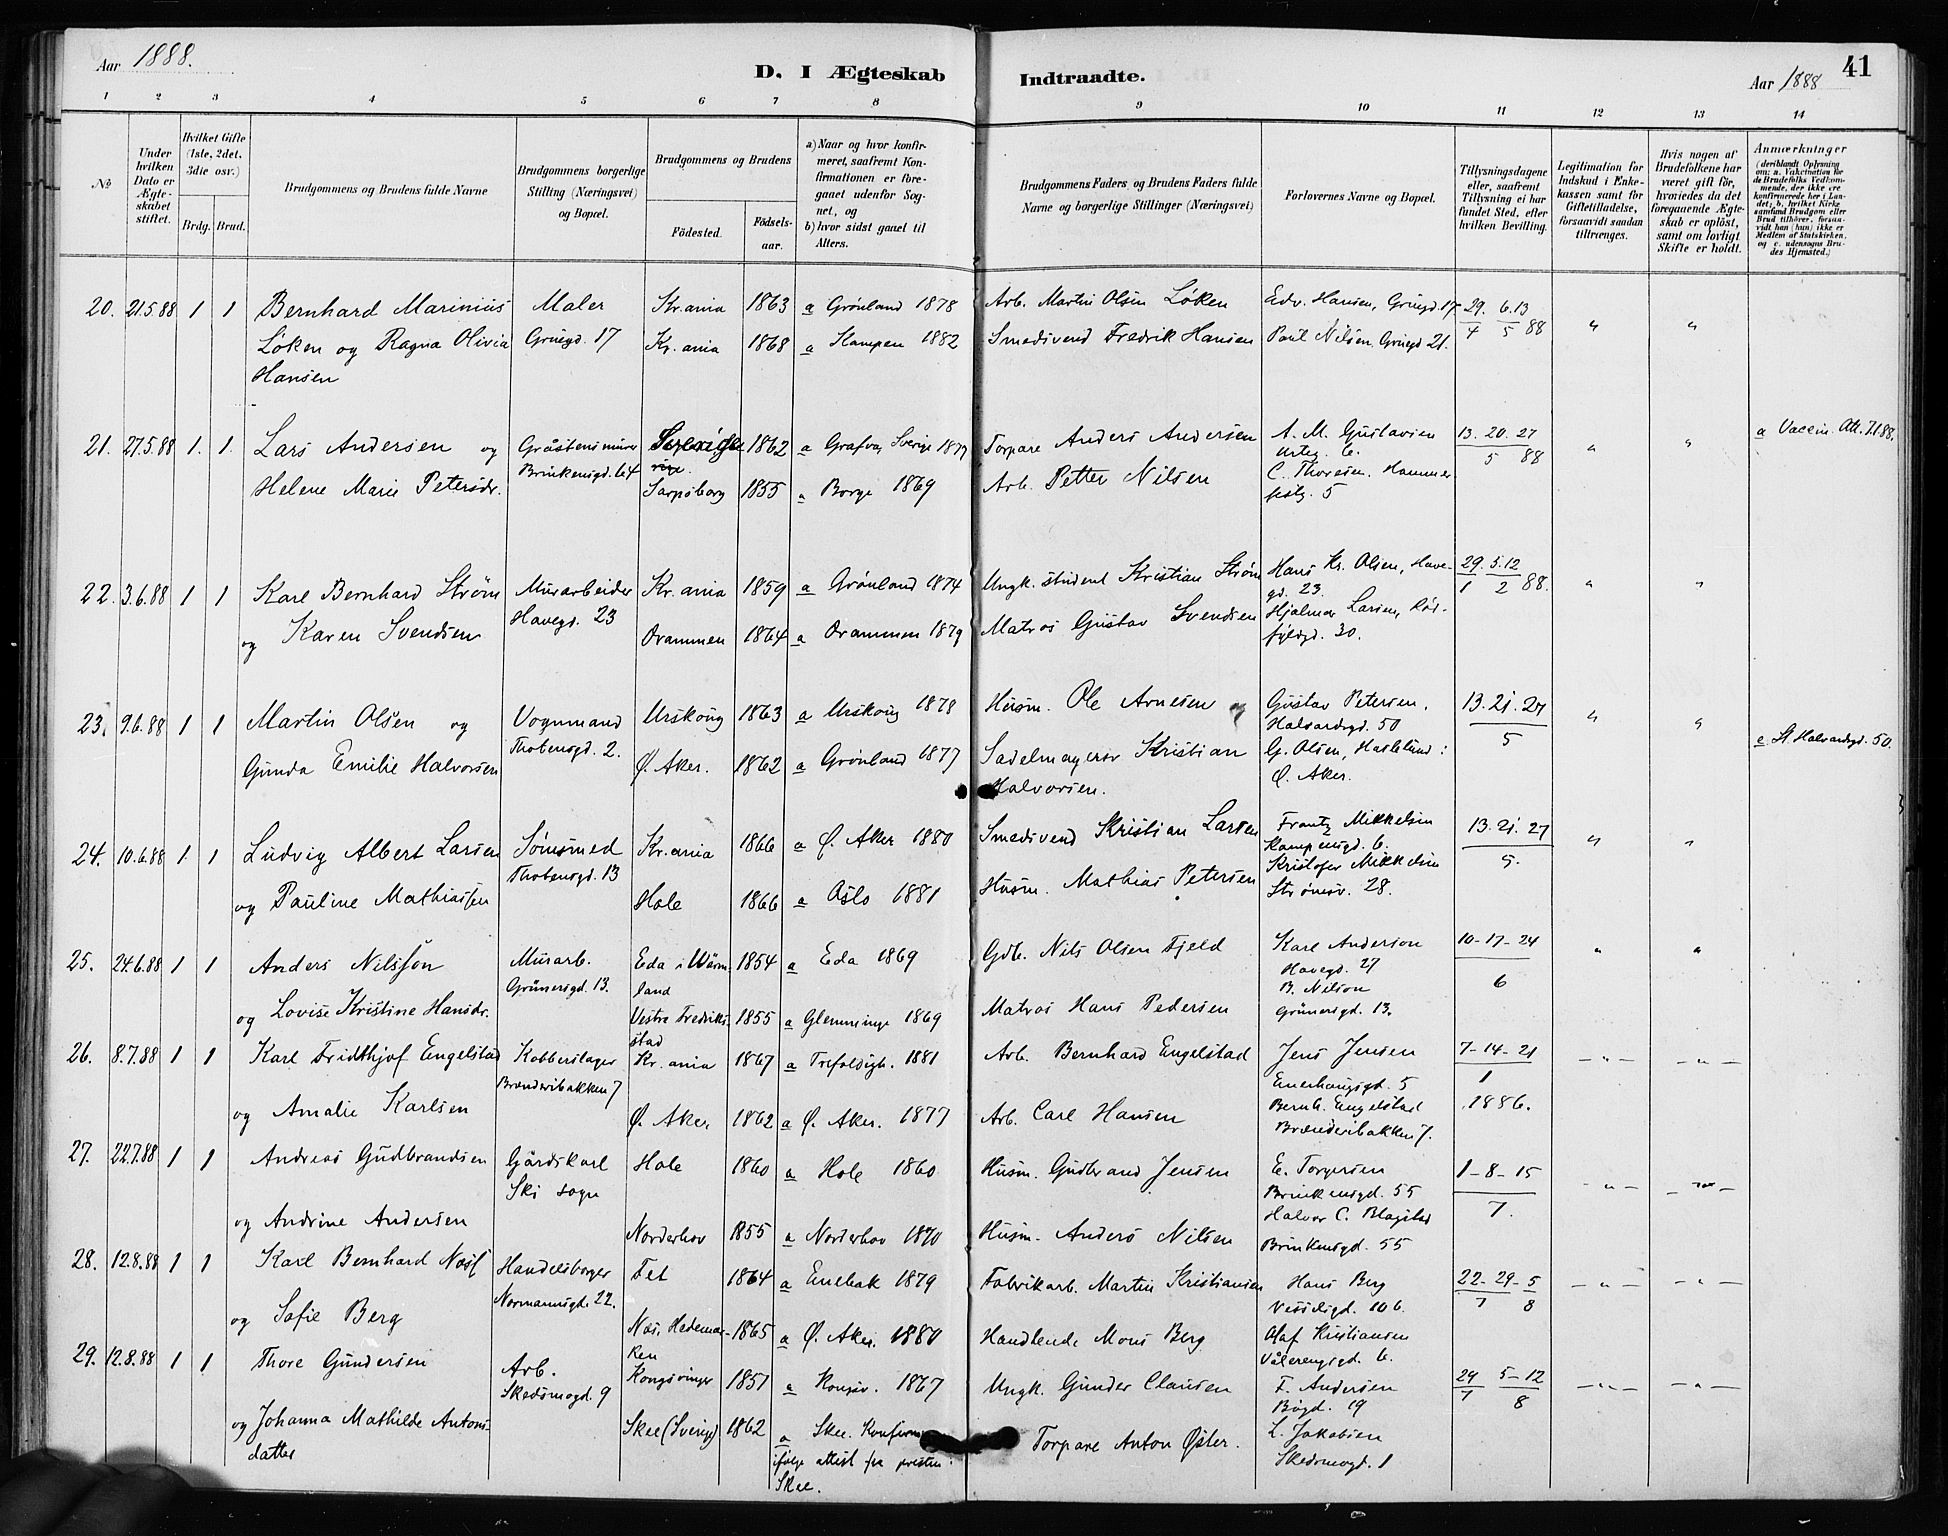 Aar 1888.
D. I Ægteskab Indtraadte.
Aar 1888
41
1 2 3 4 5 6 7 8 9 10 11 12 13 14
No
Under hvilken Dato er Ægteskabet stiftet.
Hvilket Gifte (1ste, 2det, 3die osv.)
Brdg. Brud.
Brudgommens og Brudens fulde Navne
Brudgommens borgerlige Stilling (Næringsvei) og Bopæl.
Brudgommens og Brudens
Fødested.
Fødselsaar.
a) Naar og hvor konfirmeret, saafremt Konfirmationen er foregaaet udenfor Sognet, og
b) hvor sidst gaaet til Alters.
Brudgommens Faders og Brudens Faders fulde Navne og borgerlige Stillinger (Næringsvei)
Forlovernes Navne og Bopæl.
Tillysningsdagene eller, saafremt Tillysning ei har fundet Sted, efter hvilken Bevilling.
Legitimation for Indskud i Enkekassen samt for Giftetilladelse, forsaavidt saadan tiltrænges.
Hvis nogen af Brudefolkene har været gift før, hvoriedes da det foregaaende Ægteskab er opløst, samt om lovligt Skifte er holdt.
Anmærkninger
(deriblandt Oplysning om: a. Vakcination for de Brudefolks Vedkommende, der ikke ere konfirmerede her i Landet; b. hvilket Kirkesamfund Brudgom eller Brud tilhører, forsaavidt han (hun) ikke er Medlem af Statskirken, og c. udensogns Brudes Hjemsted.)
20. 21.5.88 1 1 Bernhard Marinius Maler Kr.ania 1863 a Grønland 1878 Arb. Martin Olsen Løken Edv. Hansen, Gruegd. 17 29. 6. 13
Løken og Ragna Olivia Gruegd. 17 Kr.ania 1868 a Kampen 1882 Smedsvend Fredrik Hansen Paul Nilsen, Gruegd 21. 4 5 88 " "
Hansen
21. 27.5.88 1. 1. Lars Andersen og Gråstensmurer Sverige 1862 a Grafva, Sverige 1877 Torpare Anders Andersen A. M. Gustavsen 13. 20. 27 " " a Vaccin. Att. 7.1.88.
Brinkensgd. 64 Urteg. 6. 5 88
Helene Marie Petersdr. Sarpsborg 1855 a Borge 1869 Arb. Petter Nilsen C. Thoresen, Hammer
festg. 5
22. 3.6.88 1 1 Karl Bernhard Strøm Murarbeider Kr.ania 1859 a Grønland 1874 Ungk. student Kristian Strøm Hans Kr. Olsen, Have- 29. 5. 12 " "
Havegd. 23 gd. 23. 1 2 88.
og Karen Svendsen Drammen 1864 a Drammen 1879 Matros Gustav Svendsen Hjalmar Larsen,
fjeldgd. 30.
23. 9.6.88 1 1 Martin Olsen og Vognmand Urskoug 1863 a Urskoug 1878 Husm. Ole Arnesen Gustav Petersen, 13. 21. 27 " "
Thobensgd. 2. Halvardsgd. 50 5 c St. Halvardsgd. 50.
Gunda Emilie Halvorsen Ø. Aker. 1862 a Grønland 1877 Sadelmagersv Kristian G. Olsen, Haslelund i
Halvorsen. Ø. Aker.
24. 10.6.88 1. 1 Ludvig Albert Larsen Sømsmed Kr.ania 1866 a Ø. Aker 1880 Smedsvend Kristian Larsen Frantz Mikkelsen 13. 21. 27 " "
Thobensgd. 13 Kampensgd. 6. 5.
og Pauline Mathiassen Hole 1866 a Oslo 1881 Husm. Mathias Petersen Kristofer Mikkelsen
Strømsv. 28.
25. 24.6.88 1 1 Anders Nilsson Murarb. Eda i Wärm- 1854 a Eda 1869 Gdb. Nils Olsen Fjeld Karl Anderson 10-17-24 " "
Grünersgd. 13. land Havegd. 27 6
og Lovise Kristine Hansdr. Vestre Fredriks- 1855 a Glemminge 1869 Matros Hans Pedersen B. Nilson
stad Grünersgd. 13.
26. 8.7.88 1 1 Karl Fridthjof Engelstad Kobberslager Kr.ania 1867 a Trefoldigh. 1881 Arb. Bernhard Engelstad Jens Jensen 7-14-21 -"- -"-
Brænderibakken 7 Enerhaugsgd. 5 1
og Amalie Karlsen Ø. Aker. 1862 a Ø. Aker. 1877 Arb. Carl Hansen Bernh. Engelstad 1886.
Brænderibakken 7.
27. 22.7.88 1 1 Andreas Gudbrandsen Gårdskarl Hole 1860 a Hole 1860 Husm. Gudbrand Jensen E. Torgersen 1-8-15 -"- -"-
Ski sogn Brinkensgd. 55 7.
og Andrine Andersen Norderhov 1855 a Norderhov 1870 Husm. Anders Nilsen Halvor C. Blagstad
Brinkensgd. 55
28. 12.8.88 1 1 Karl Bernhard Næss Handelsborger Fet 1864 a Enebak 1879 Fabrikarb. Martin Kristiansen Hans Berg 22-29-5 -"- -"-
Normannsgd. 22. Vesselsgd. 10 b. 7 8
og Sofie Berg Næs, Hedemar- 1865 a Ø. Aker. 1880 Handlende Mons Berg Olaf Kristiansen
ken Vålerengsgd. 6.
29. 12.8.88 1 1 Thore Gundersen Arb. Kongsvinger 1851 a Kongsv. 1867 Ungk. Gunder Clausen F. Andersen 29 5-12 -"- -"-
Skedsmogd. 9 Bøgd. 19 7 8
og Johanna Mathilde Antons- Skee (Sverige) 1862 a Skee. Konfirm Torpare Anton Øster. L. Jakobsen
datter ifølge attest fra presten i Skedsmogd. 1
Skee.